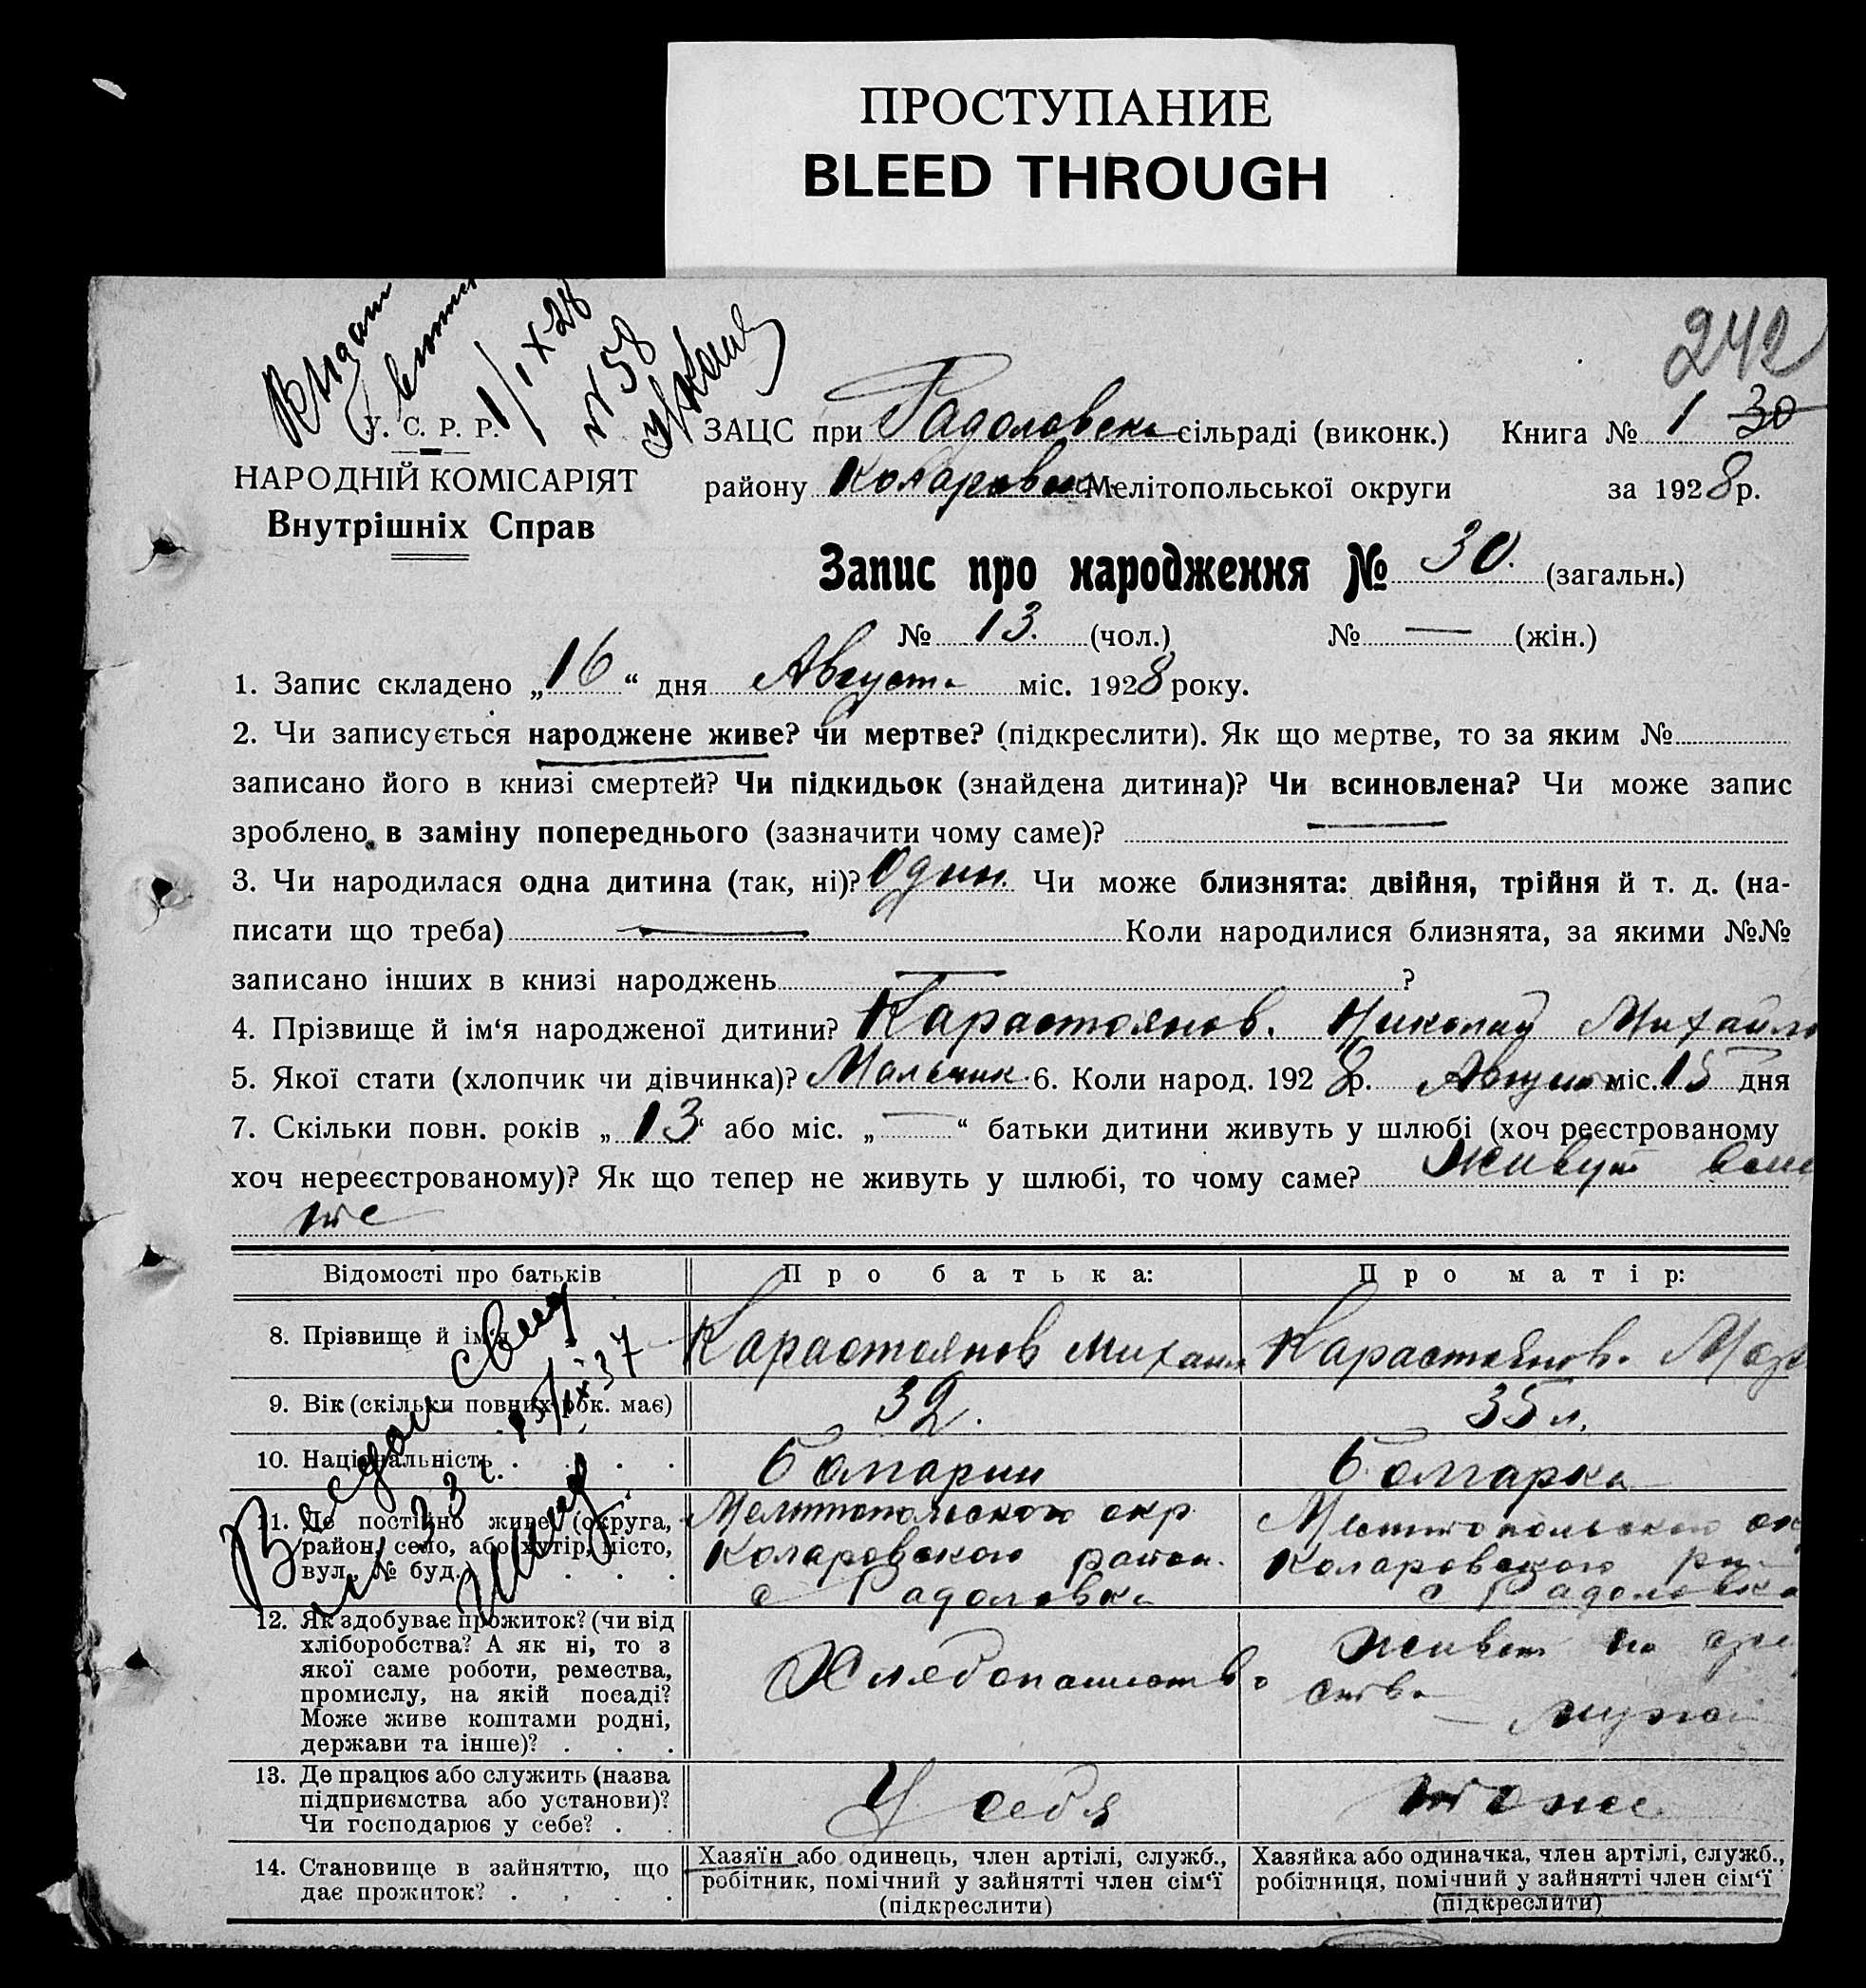 ПРОСТУПАНИЕ
BLEED THROUGH
242
1/IX 28
№ 58
У. С. Р. Р.
НАРОДНІЙ КОМІСАРІЯТ
Внутрішніх Справ
ЗАЦС при Радоловск сільраді (виконк.) Книга № 1 30
району Коларовск Мелітопольської округи за 1928 р.
Запис про народження № 30. (загальн.)
№ 13. (чол.) № — (жін.)
1. Запис складено „16“ дня Августа міс. 1928 року.
2. Чи записується народжене живе? чи мертве? (підкреслити). Як що мертве, то за яким №
записано його в книзі смертей? Чи підкидьок (знайдена дитина)? Чи всиновлена? Чи може запис
зроблено в заміну попереднього (зазначити чому саме)? —
3. Чи народилася одна дитина (так, ні)? Один. Чи може близнята: двійня, трійня й т. д. (на-
писати що треба) — Коли народилися близнята, за якими №№
записано інших в книзі народжень — ?
4. Прізвище й ім‘я народженої дитини? Карастоянов. Николай Михайло
5. Якої стати (хлопчик чи дівчинка)? Мальчик. 6. Коли народ. 1928 р. Август міс. 15 дня
7. Скільки повн. років „13“ або міс. „—“ батьки дитини живуть у шлюбі (хоч реєстрованому
хоч нереєстрованому)? Як що тепер не живуть у шлюбі, то чому саме? Живут вме
сте
Відомості про батьків Про батька: Про матір:
8. Прізвище й ім‘я Карастоянов Михаил Карастоянов.
9. Вік (скільки повних рок. має) 32. 35 л.
10. Національність . . . . Болгарин Болгарка
11. Де постійно живе (округа, район, село, або хутір, місто, вул. № буд.)
Мелитопольского окр
Коларовского район.
с Радоловка
Мелитопольского ок
Коларовского р
с Радоловка
12. Як здобуває прожиток? (чи від хліборобства? А як ні, то з якої саме роботи, ремества, промислу, на якій посаді? Може живе коштами родні, держави та інше)? . . .
Хлебопашество
Живет на сре
ства
мужа
13. Де працює або служить (назва підприємства або установи)? Чи господарює у себе? . .
У себя
тоже
14. Становище в зайняттю, що дає прожиток? . . . .
Хазяїн або одинець, член артілі, служб.,
робітник, помічний у зайнятті член сім‘ї
(підкреслити)
Хазяйка або одиначка, член артілі, служб.,
робітниця, помічний у зайнятті член сім‘ї
(підкреслити)